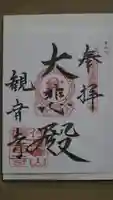 奉拝
大悲殿
観音寺